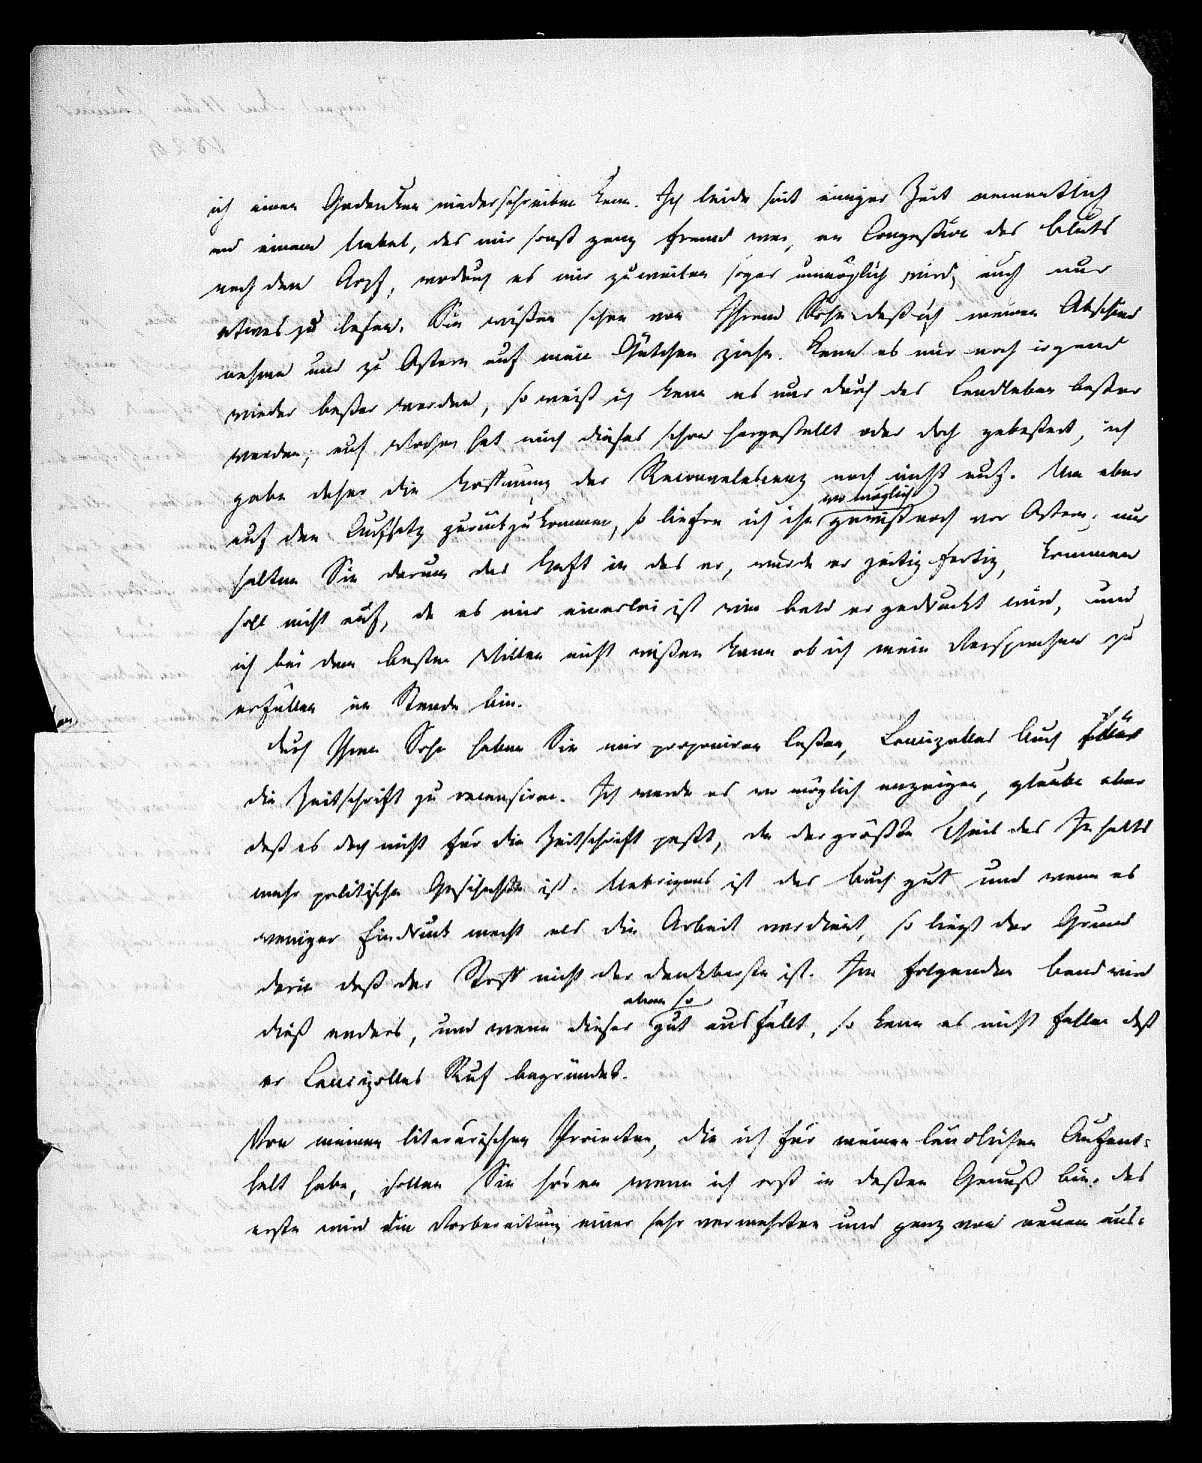 ich einen Gedanken niederschreiben kann. Ich leide seit einiger Zeit namentlich
an einem Uebel, das mir sonst ganz fremd war, an Congestion des Bluts
nach dem Kopf, wodurch es mir zuweilen sogar unmöglich wird, auch nur
etwas zu lesen. Sie wißen schon von Ihrem Sohn daß ich meinen Abschied
nehme und zu Ostern auf mein Gütchen ziehe. Kann es mir noch irgend
wieder beßer werden, so weiß ich kann es nur durch das Landleben beßer
werden; auf Wochen hat mich dieses schon hergestellt oder doch gebeßert, ich
gebe daher die Hoffnung der Reconvalescenz noch nicht auf. Um aber
auf den Aufsatz zurückzukommen, so liefre ich ihn wo möglich gewiß noch vor Ostern, nur
halten Sie darum das Heft in das er, würde er zeitig fertig, kommen
soll nicht auf, da es mir einerlei ist wie bald er gedruckt wird, und
ich bei dem besten Willen nicht wißen kann ob ich mein Versprechen zu
erfüllen im Stande bin.
Durch Ihren Sohn haben Sie mir proponiren laßen, Lancizolles Buch für
die Zeitschrift zu recensiren. Ich werde es wo möglich anzeigen, glaube aber
daß es doch nicht für die Zeitschrift paßt, da der größte Theil des Inhalts
mehr politische Geschichte ist. Uebrigens ist das Buch gut und wenn es
weniger Eindruck macht als die Arbeit verdient, so liegt der Grund
darin daß der Stoff nicht der dankbarste ist. Im folgenden Band wird
dieß anders, und wenn dieser eben so gut ausfällt, so kann es nicht fehlen daß
er Lancizolles Ruf begründet.
Von meinen literärischen Projecten, die ich für meinen ländlichen Aufent=
halt habe, sollen Sie hören wenn ich erst in deßen Genuß bin. Das
erste wird die Vorbereitung einer sehr vermehrten und ganz von neuem aus=